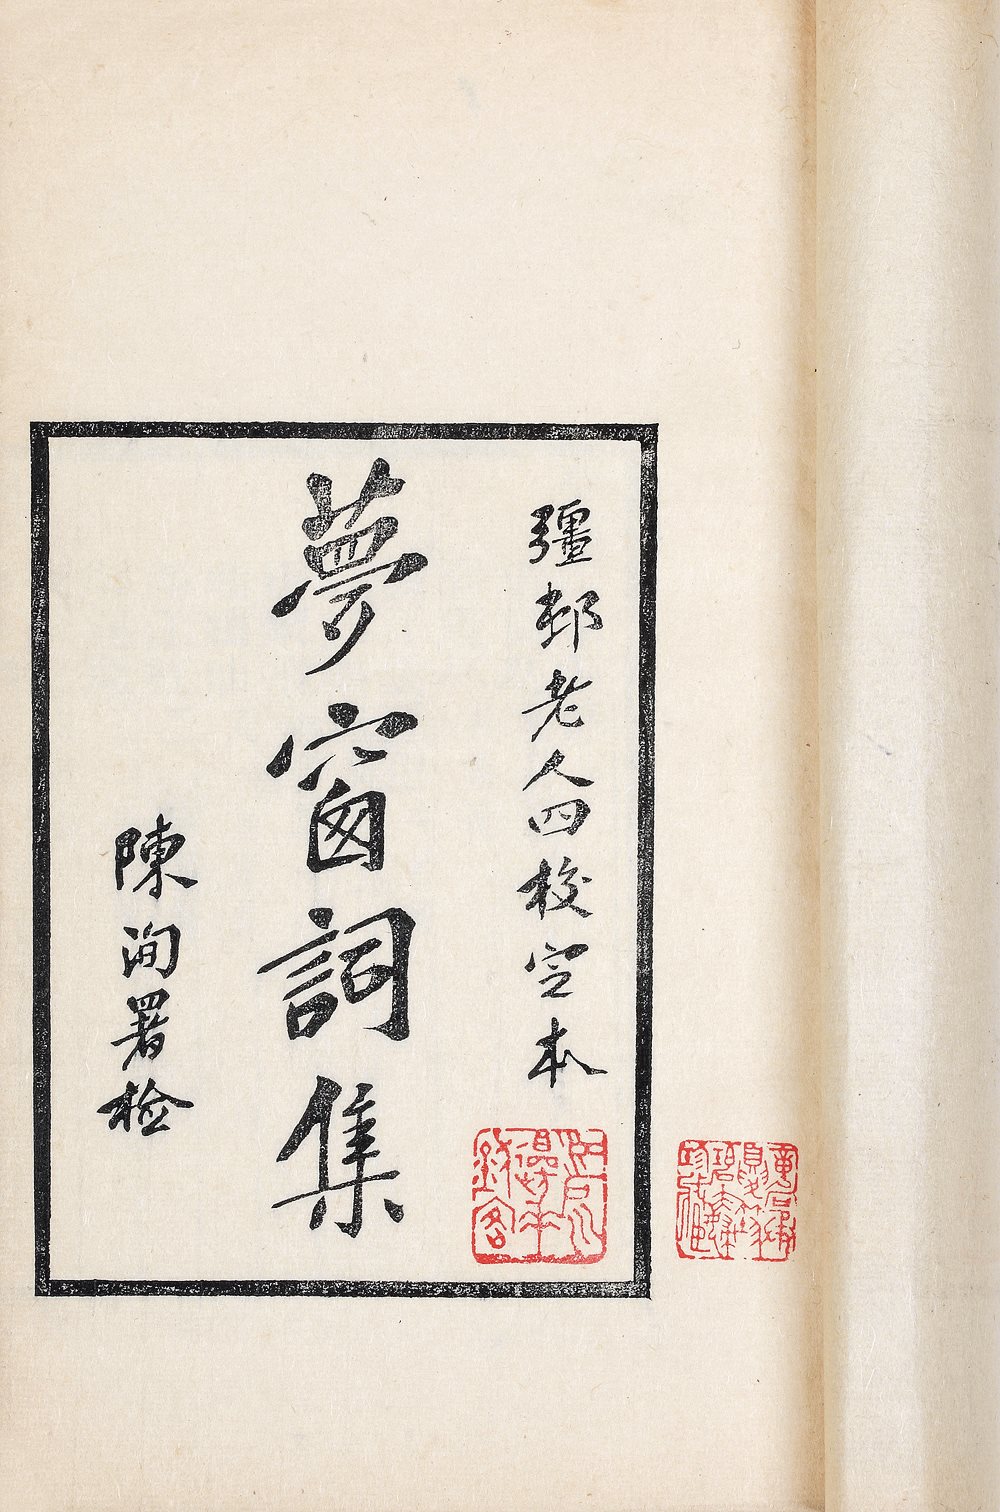 彊邨老人四校定本
夢窗詞集
陳洵署檢